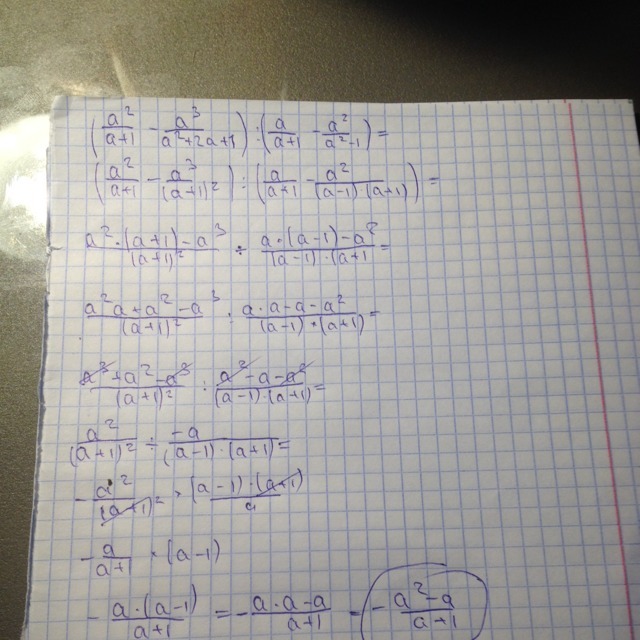 (a²/(a+1) - a³/(a²+2a+1)) : (a/(a+1) - a²/(a²-1)) =
(a²/(a+1) - a³/(a+1)²) : (a/(a+1) - a²/((a-1)·(a+1))) =
(a²·(a+1)-a³)/(a+1)² : (a·(a-1)-a²)/((a-1)·(a+1) =
(a²a+a²-a³)/(a+1)² : (a·a-a-a²)/((a-1)·(a+1)) =
(a³+a²-a³)/(a+1)² : (a²-a-a²)/((a-1)·(a+1)) =
a²/(a+1)² : -a/((a-1)·(a+1)) =
- a²/(a+1)² · ((a-1)·(a+1))/a
- a/(a+1) · (a-1)
- (a·(a-1))/(a+1) = - (a·a-a)/(a+1) = - (a²-a)/(a+1)